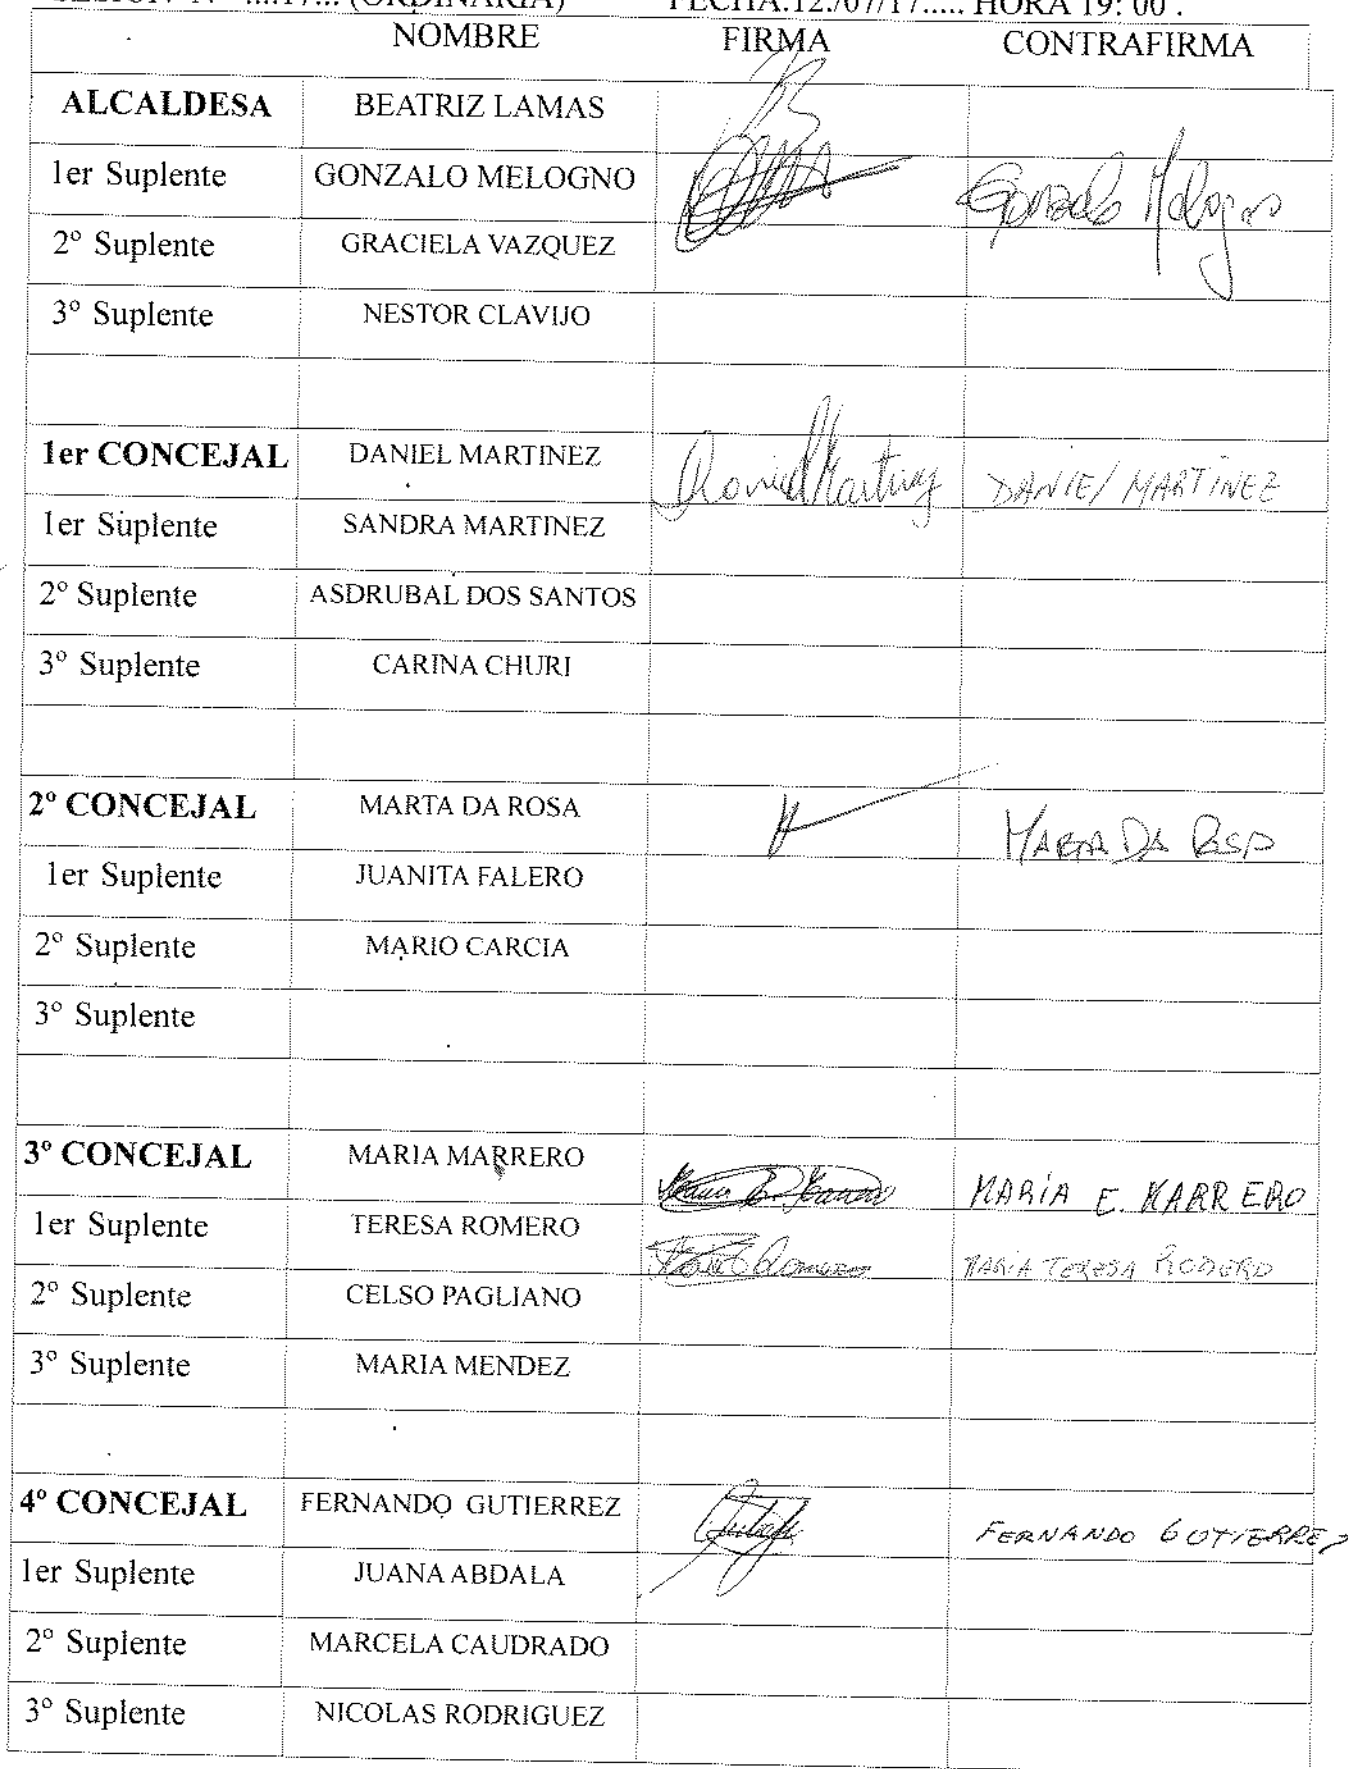 SESION Nº ....17... (ORDINARIA) FECHA:12./07/17..... HORA 19: 00 .
NOMBRE FIRMA CONTRAFIRMA
ALCALDESA BEATRIZ LAMAS
1er Suplente GONZALO MELOGNO Gonzalo Melogno
2º Suplente GRACIELA VAZQUEZ
3º Suplente NESTOR CLAVIJO
1er CONCEJAL DANIEL MARTINEZ Daniel Martinez DANIEl MARTINEZ
1er Suplente SANDRA MARTINEZ
2º Suplente ASDRUBAL DOS SANTOS
3º Suplente CARINA CHURI
2º CONCEJAL MARTA DA ROSA MARTA DA ROSA
1er Suplente JUANITA FALERO
2º Suplente MARIO CARCIA
3º Suplente
3º CONCEJAL MARIA MARRERO MARIA E. MARRERO
1er Suplente TERESA ROMERO MARIA TERESA ROMERO
2º Suplente CELSO PAGLIANO
3º Suplente MARIA MENDEZ
4º CONCEJAL FERNANDO GUTIERREZ FERNANDO GUTIERREZ
1er Suplente JUANA ABDALA
2º Suplente MARCELA CAUDRADO
3º Suplente NICOLAS RODRIGUEZ